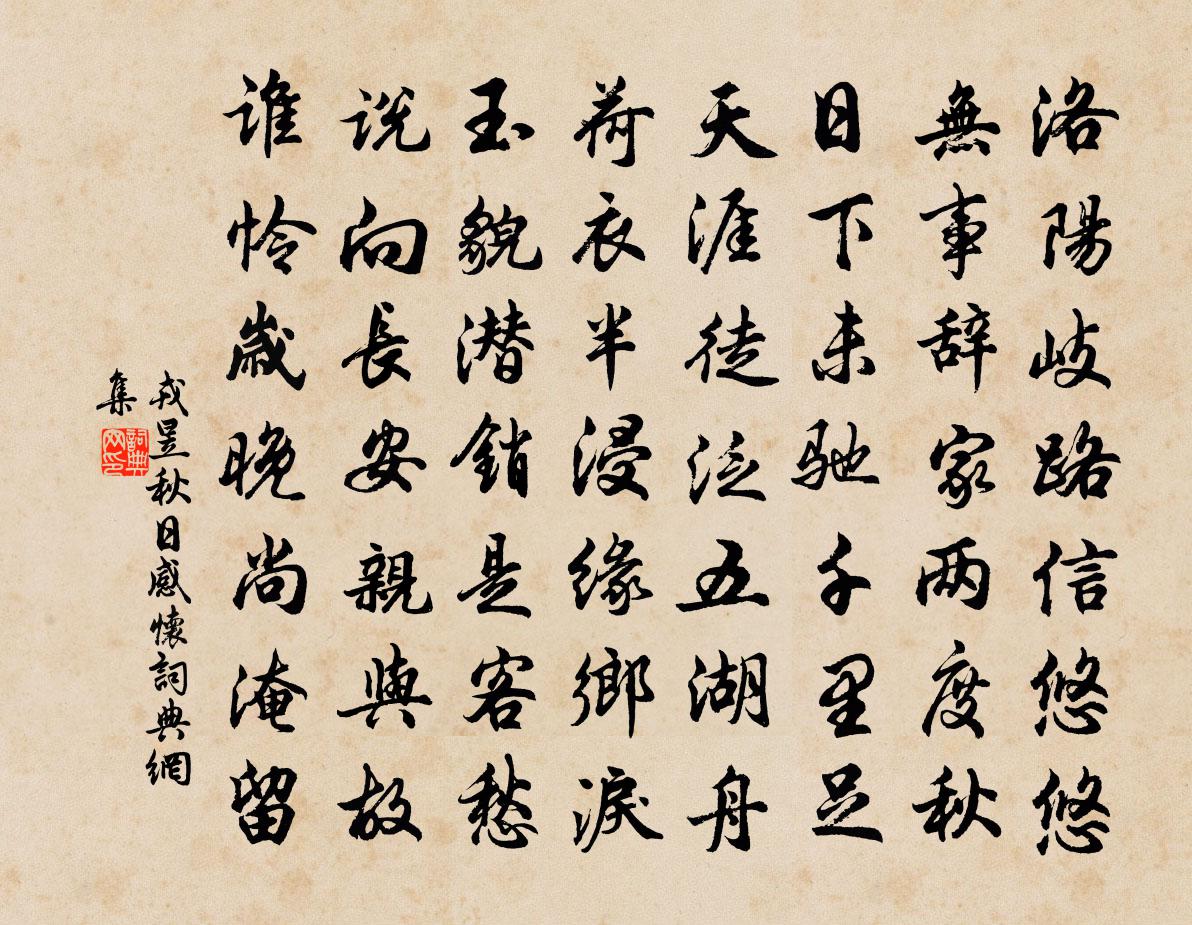 洛陽歧路信悠悠
無事辞家两度秋
日下未馳千里足
天涯徒泛五湖舟
荷衣半浸缘鄉淚
玉貌潜銷是客愁
説向長安親與故
谁怜歲晚尚淹留
戎昱秋日感懷詞典網
集
詞典
网印